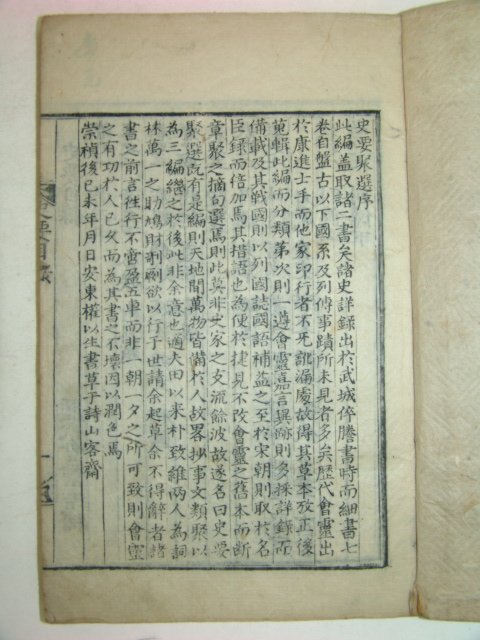 史要聚選序
此編盖取諸二書矣諸史詳錄出於武城倅謄書時而細書七
卷自盤古以下國系及列傳事蹟所未見者多矣歷代會靈出
於康進士手而他家印行者不死訛漏處故得其草本攷正後
蒐輯此編而分類第次則一遵會靈嘉言異跡則多採詳錄而
備載及其戰國則以列國誌國語補益之至於宋朝則取於名
臣錄而倍加焉其措語也為便於捷見不改會靈之舊本而斷
章聚選摘句選焉則此莫非史家之支流餘波故遂名曰史要
聚選既有是編則天地間萬物皆備於人故畧抄事文類聚以
為三編繼之於後此非余意也適夫田以采朴致維兩人為詞
林萬一之助鳩財剞劂欲以行于世請余起草余不得辭者諸
書之前言徃行不啻盈五車而非一朝一夕之所可致則會靈
之有功於人已久而為其書之不壞因以潤色焉
崇禎後己未年月日安東權以生書草于詩山客齋